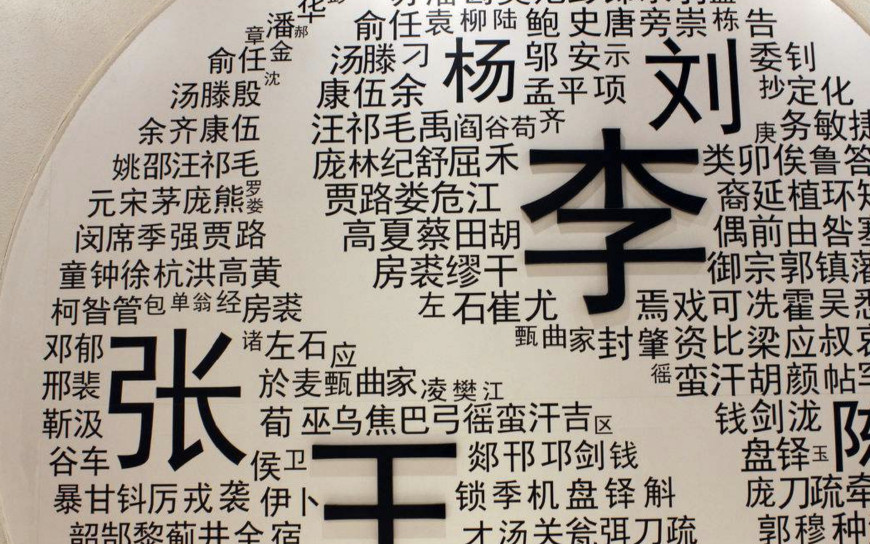 华
章潘郝 俞任袁柳陆 鲍 史唐旁崇栋 告
俞任金 汤滕刁 杨 邬 安示 刘 委钊
沈
汤滕殷 康伍余 孟平项 抄定化
余齐康伍 汪祁毛禹阎谷荀齐 庚务敏捷
姚邵汪祁毛 庞林纪舒屈禾 李 类卯俟鲁答
元宋茅庞熊罗娄 贾路娄危江 裔延植环知
闵席季强贾路 高夏蔡田胡 偶前由昝
童钟徐杭洪高黄 房裘缪干 御宗郭镇
柯昝管包单翁经房裘 左石崔尤 焉戏可冼霍吴
邓郁 张 诸左石应 甄曲家封肇资比梁应叔哀
邢裴 於麦甄曲家凌樊江 徭蛮汗胡颜帖
靳汲 荀巫乌焦巴弓徭蛮汗吉区 钱剑泷 陈
谷车 侯卫 王 郯邗邛剑钱 盘铎玉
暴甘钭厉戎袭伊卜 锁季机盘铎斛 庞刀疏牵
韶郜黎蓟井全宿 才汤关瓮弭刀疏 郭穆种